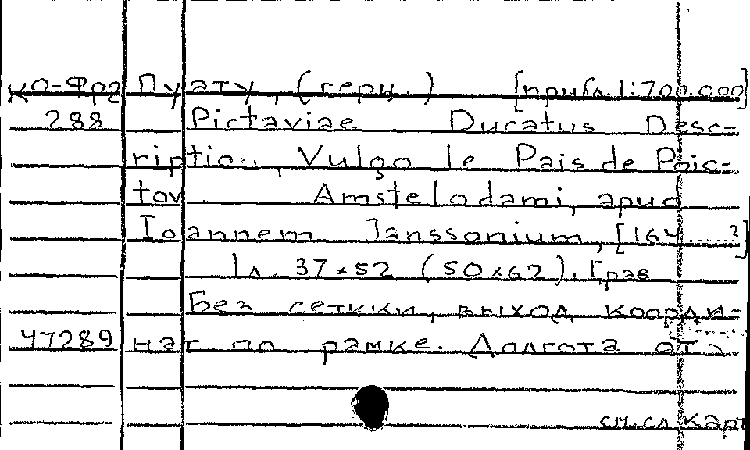 КО-Фрг Пуату, (герц.) [прибл. 1:700.000]
288 Pictaviae Ducatus Desc=
riptio, Vulgo le Pais de Poic=
tou. Amstelodami, apud
Ioannem Janssonium, [164...?]
1 л. 37×52 (50×62). Грав
Без сетки, выход коорди=
47289 нат по рамке. Долгота от
см. сл. карт